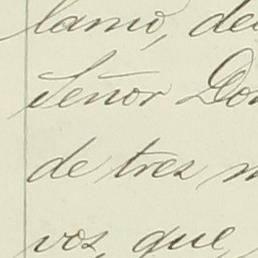 lamo, de
Señor Don
de tres m
vos, que